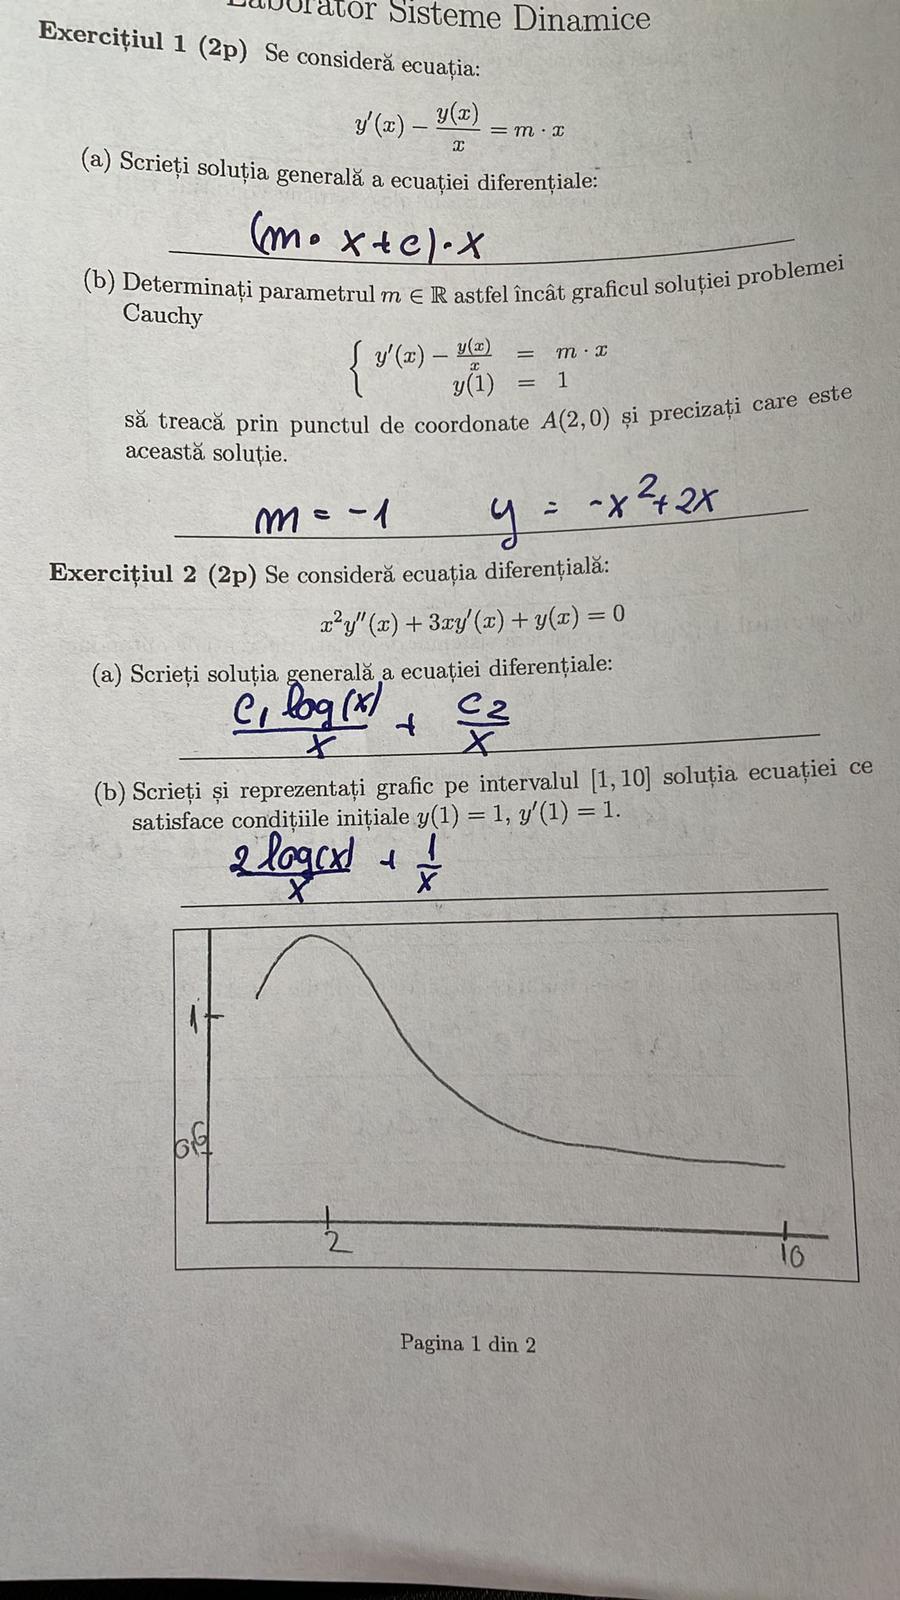 Laborator Sisteme Dinamice
Exercițiul 1 (2p) Se consideră ecuația:
y'(x) − y(x)/x = m · x
(a) Scrieți soluția generală a ecuației diferențiale:
(m · x + c) · x
(b) Determinați parametrul m ∈ ℝ astfel încât graficul soluției problemei
Cauchy
{ y'(x) − y(x)/x = m · x
y(1) = 1
să treacă prin punctul de coordonate A(2, 0) și precizați care este
această soluție.
m = -1 y = -x² + 2x
Exercițiul 2 (2p) Se consideră ecuația diferențială:
x²y''(x) + 3xy'(x) + y(x) = 0
(a) Scrieți soluția generală a ecuației diferențiale:
c₁ log(x)/x + c₂/x
(b) Scrieți și reprezentați grafic pe intervalul [1, 10] soluția ecuației ce
satisface condițiile inițiale y(1) = 1, y'(1) = 1.
2 log(x)/x + 1/x
1
0,6
2
10
Pagina 1 din 2